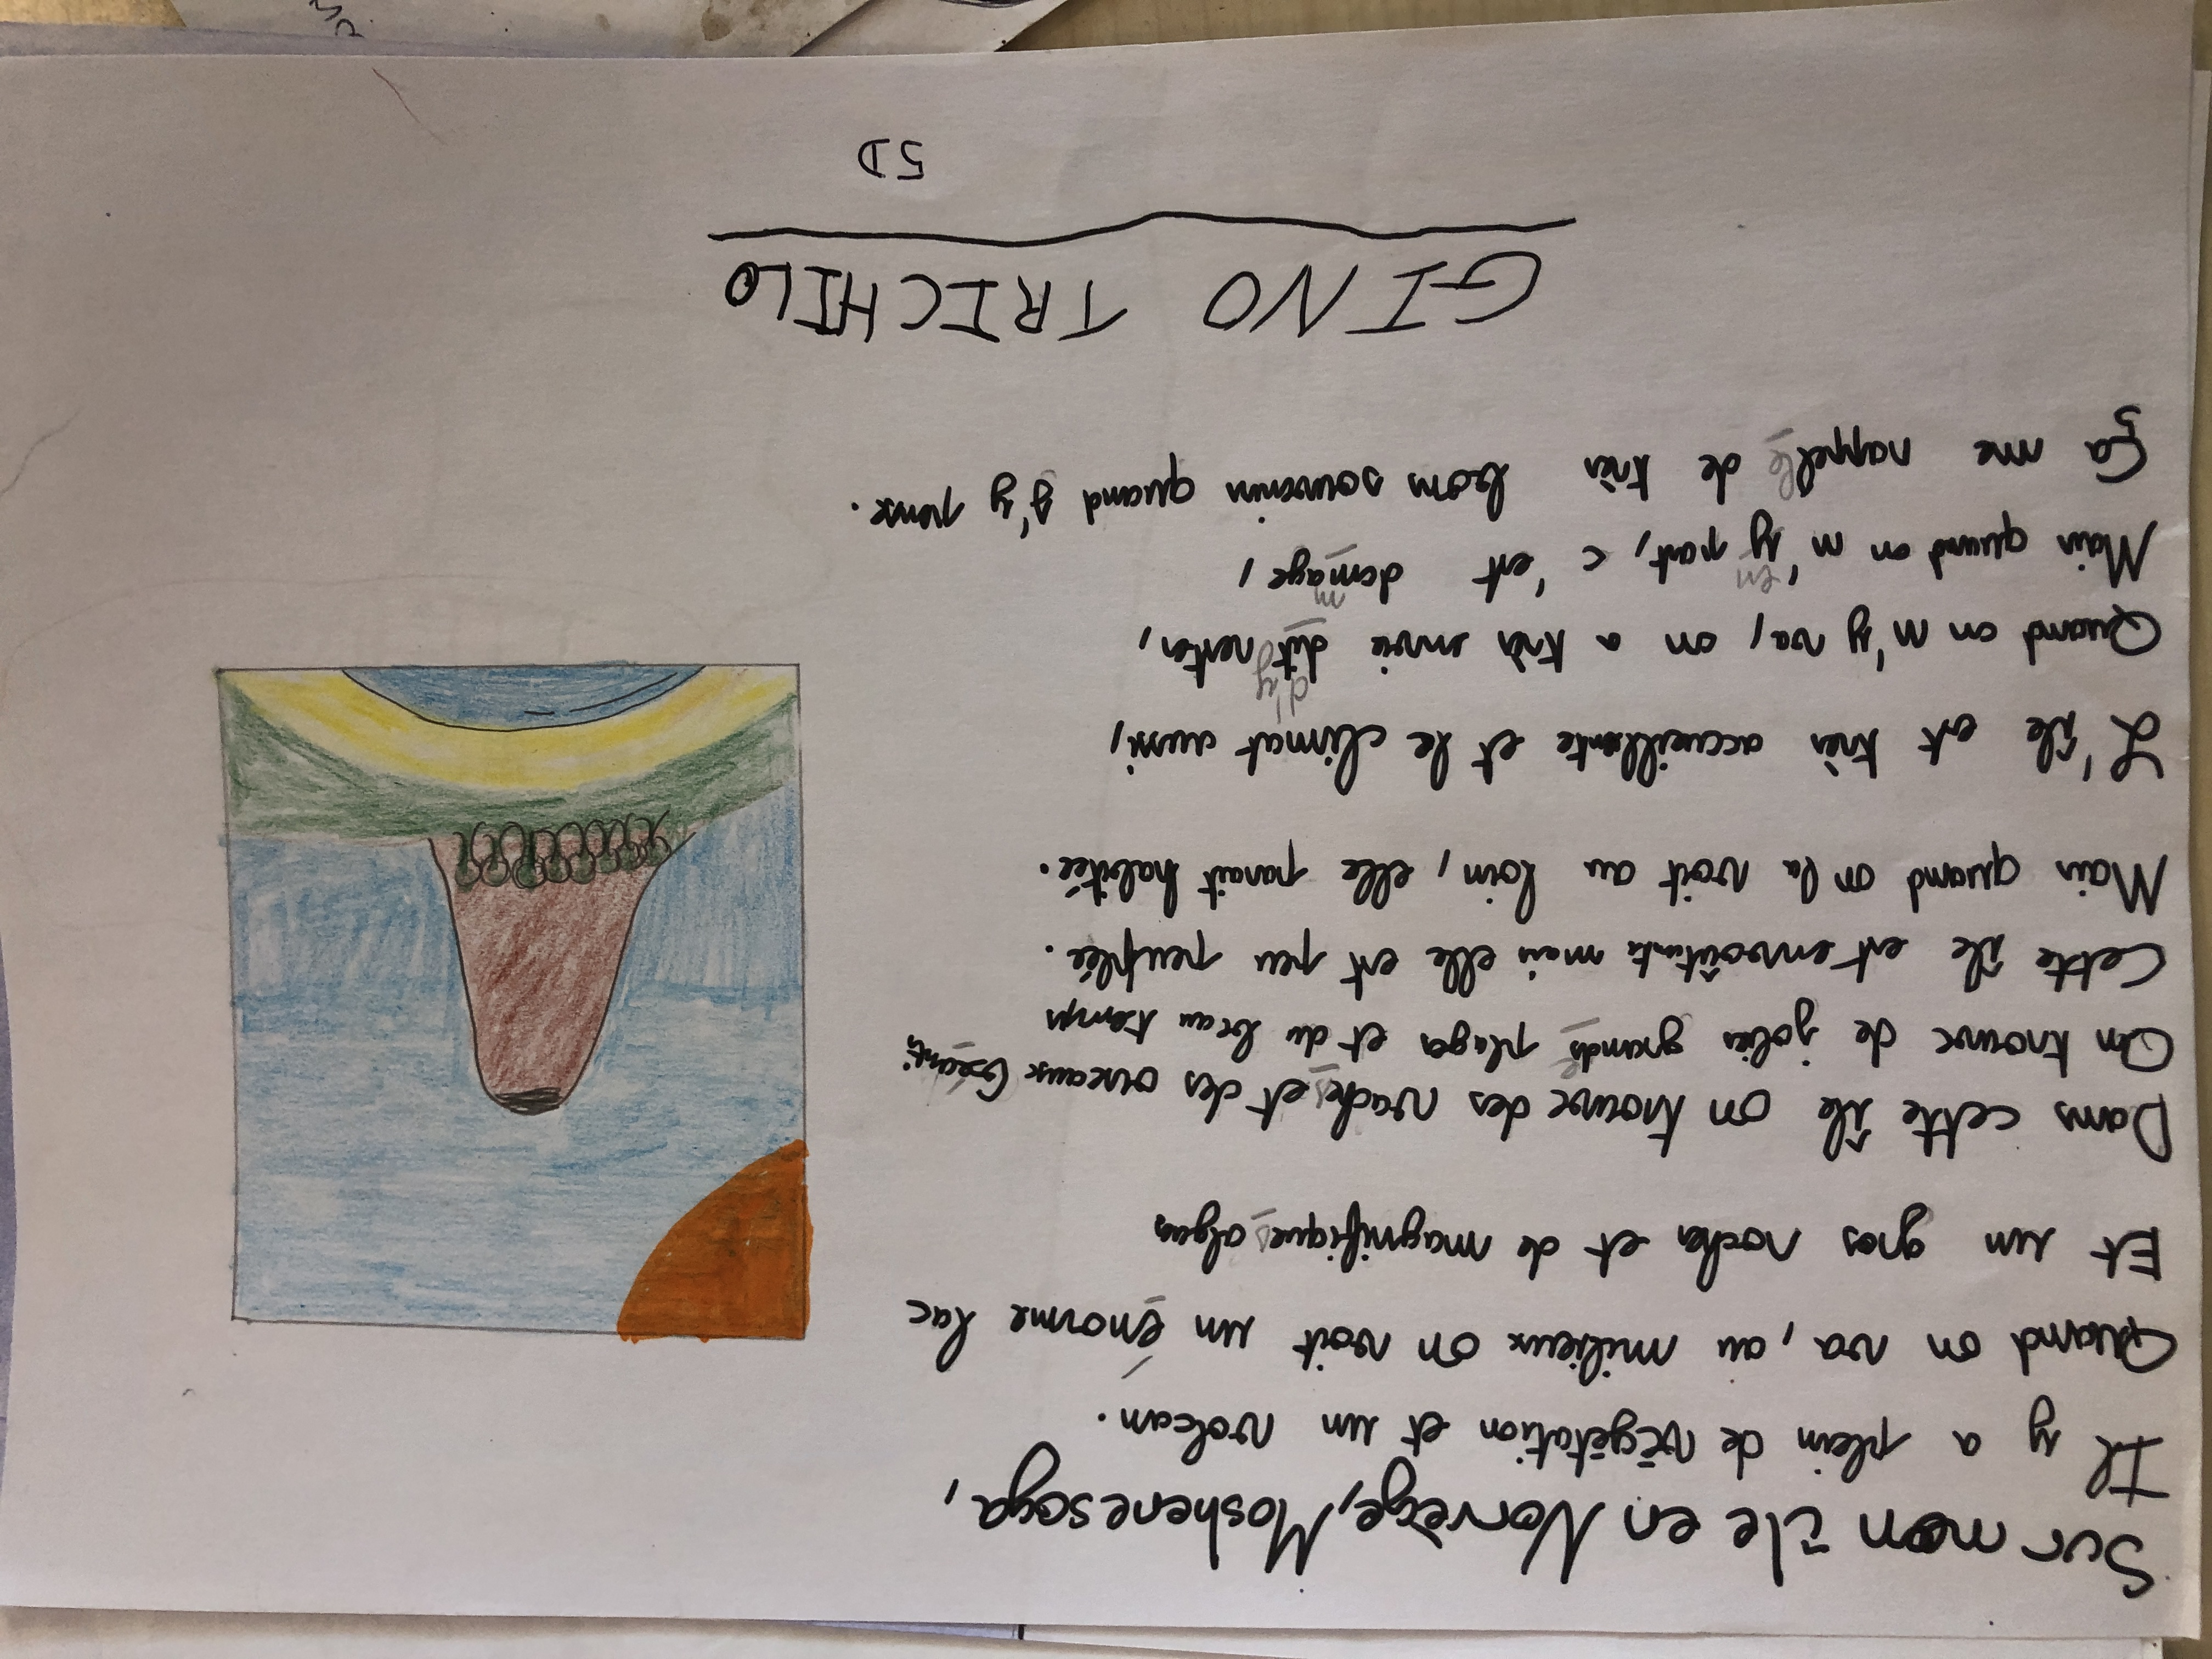 Sur mon île en Norvège, Moshenesoya,
Il y a plein de végétation et un volcan.
Quand on va, au milieux on voit un énorme lac
Et un gros rocher et de magnifiques algues
Dans cette île on trouve des vaches et des oiseaux Géants
On trouve de jolies grande plages et du beau temps
Cette île est envoûtante mais elle est peu peuplée.
Mais quand on la voit au loin, elle parait habitée.
L'île est très accueillante et le climat aussi,
Quand on n'y va, on a très envie d'y rester,
Mais quand on m'en part, c'est dommage,
Ça me rappelle de très bons souvenirs quand j'y pense.
GINO TRICHILO
5D